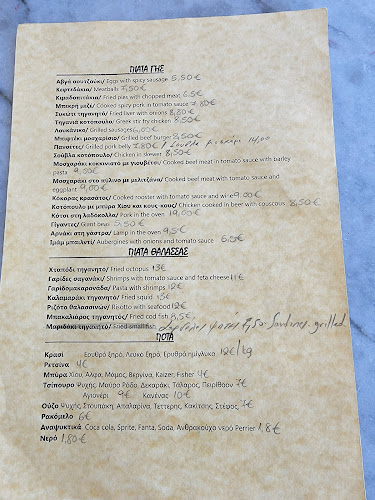 ΠΙΑΤΑ ΓΗΣ
Αβγά σουτζούκι/ Eggs with spicy sausage 5,50€
Κεφτεδάκια/ Meatballs 7,50€
Κιμαδοπιτάκια/ Fried pies with chopped meat 6.5€
Μπεκρή μεζέ/ Cooked spicy pork in tomato sauce 7.80€
Συκώτι τηγανητό/ Fried liver with onions 8,80€
Τηγανιά κοτόπουλο/ Greek stir fry chicken 8,50€
Λουκάνικο/ Grilled sausages 6,00€
Μπιφτέκι μοσχαρίσιο/ Grilled beef burger 8,50€
Πανσέτες/ Grilled pork belly 7.80€ / 14,00
Σούβλα κοτόπουλο/ Chicken in skewer 8,50€
Μοσχαράκι κοκκινιστό με γιουβέτσι/ Cooked beef meat in tomato sauce with barley
pasta 9,00€
Μοσχαράκι στο πύλινο με μελιτζάνα/ Cooked beef meat with tomato sauce and
eggplant 9,00€
Κόκορας κρασάτος/ Cooked rooster with tomato sauce and wine 9,00€
Κοτόπουλο με μπύρα Χίου και κους-κους/ Chicken cooked in beer with couscous 8,50€
Κότσι στη λαδόκολλα/ Pork in the oven 19,00€
Γίγαντες/ Giant beans 5,50€
Αρνάκι στη γάστρα/ Lamp in the oven 9,5€
Ιμάμ μπαιλντί/ Aubergines with onions and tomato sauce 6.5€
ΠΙΑΤΑ ΘΑΛΑΣΣΑΣ
Χταπόδι τηγανητό/ Fried octopus 13€
Γαρίδες σαγανάκι/ Shrimps with tomato sauce and feta cheese 11€
Γαριδομακαρονάδα/ Pasta with shrimps 12€
Καλαμαράκι τηγανητό/ Fried squid 13€
Ριζότο θαλασσινών/ Rizotto with seafood 12€
Μπακαλιάρος τηγανητός/ Fried cod fish 8,5€
Μαριδάκι τηγανητό/ Fried smallfish Σαρδέλα ψητή 7,50 Sardines grilled
ΠΟΤΑ
Κρασί Ερυθρό ξηρό, Λευκό ξηρό, Ερυθρό ημίγλυκο 12€/kg
Ρετσίνα 4€
Μπύρα Χίου, Άλφα, Μάμος, Βεργίνα, Kaizer, Fisher 4€
Τσίπουρο Ψυχής, Μαύρο Ρόδο, Δεκαράκι, Τάλαρος, Πειρίθοον 7€
Αγιονέρι 9€ Κανένας 10€
Ούζο Ψυχής, Στουπάκη, Απαλαρίνα, Τέττερης, Κακίτσης, Στέφος 7€
Ρακόμελο 6€
Αναψυκτικά Coca cola, Sprite, Fanta, Soda, Ανθρακούχο νερό Perrier 1,8€
Νερό 1,80€